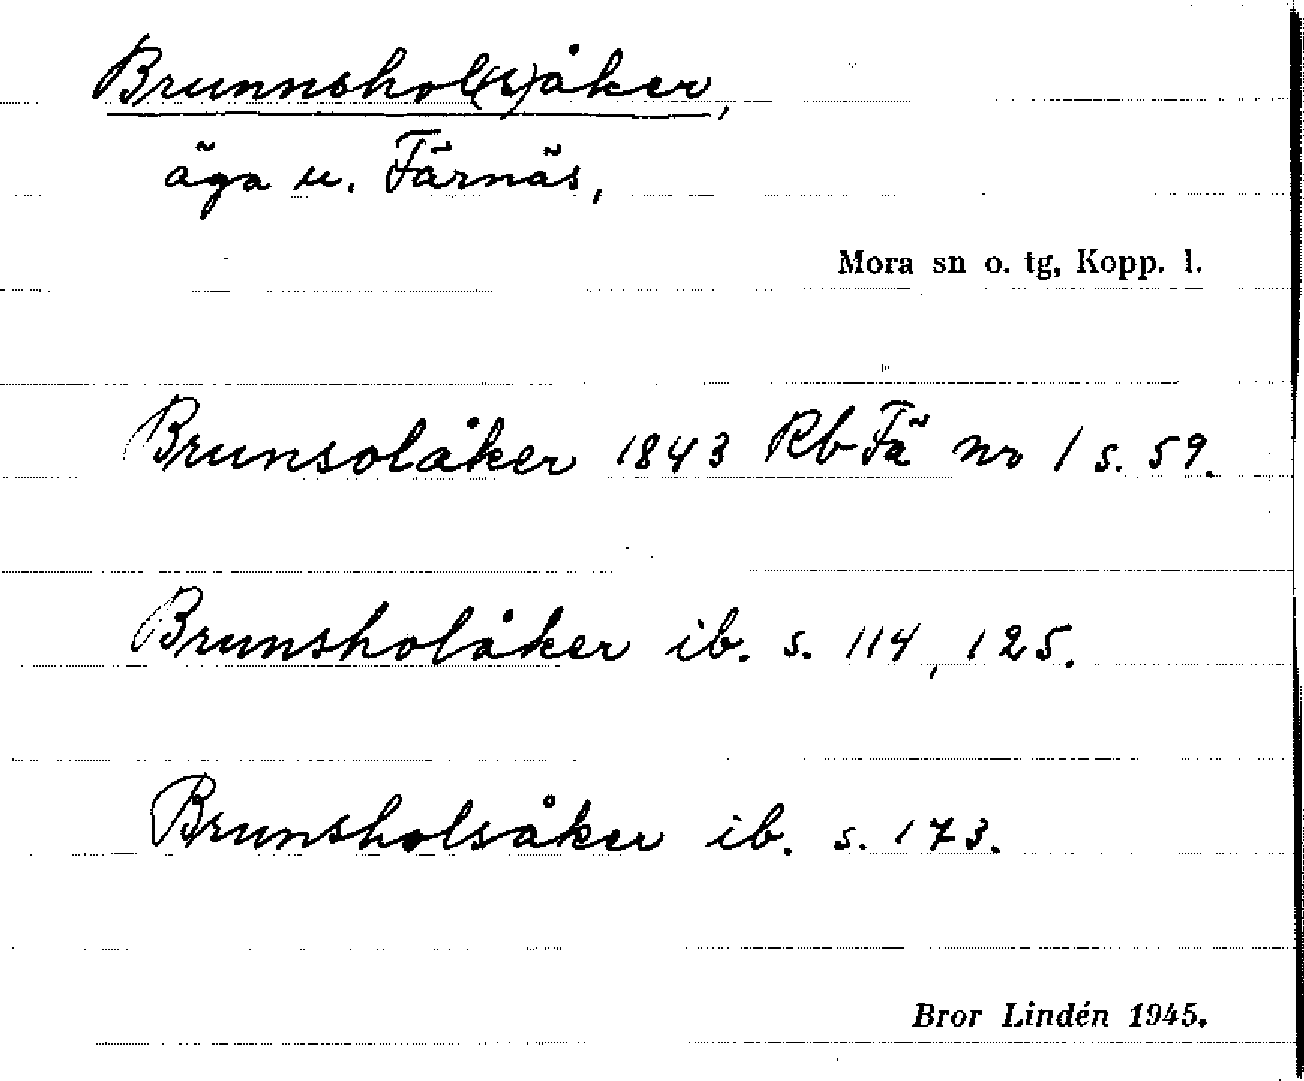 Brunnshol(s)åker,
äga u. Färnäs,
Mora sn o. tg, Kopp. l.
Brunsolåker 1843 Rb Fä nr 1 s. 59.
Brunsholåker ib. s. 114, 125.
Brunsholsåker ib. s. 173.
Bror Lindén 1945.